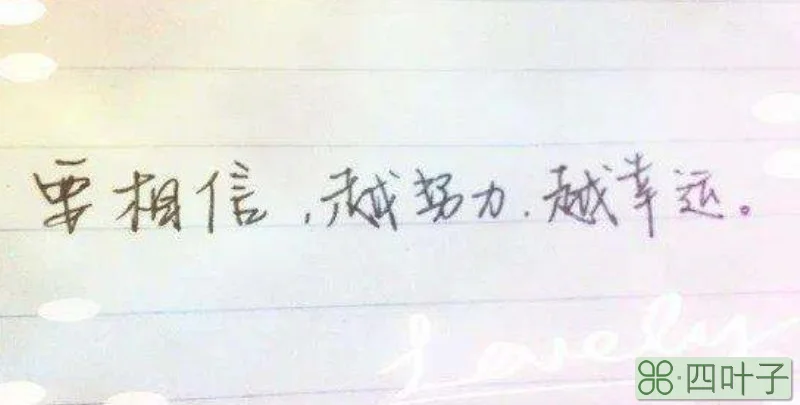 要相信,越努力,越幸运。
Lovely
四叶子